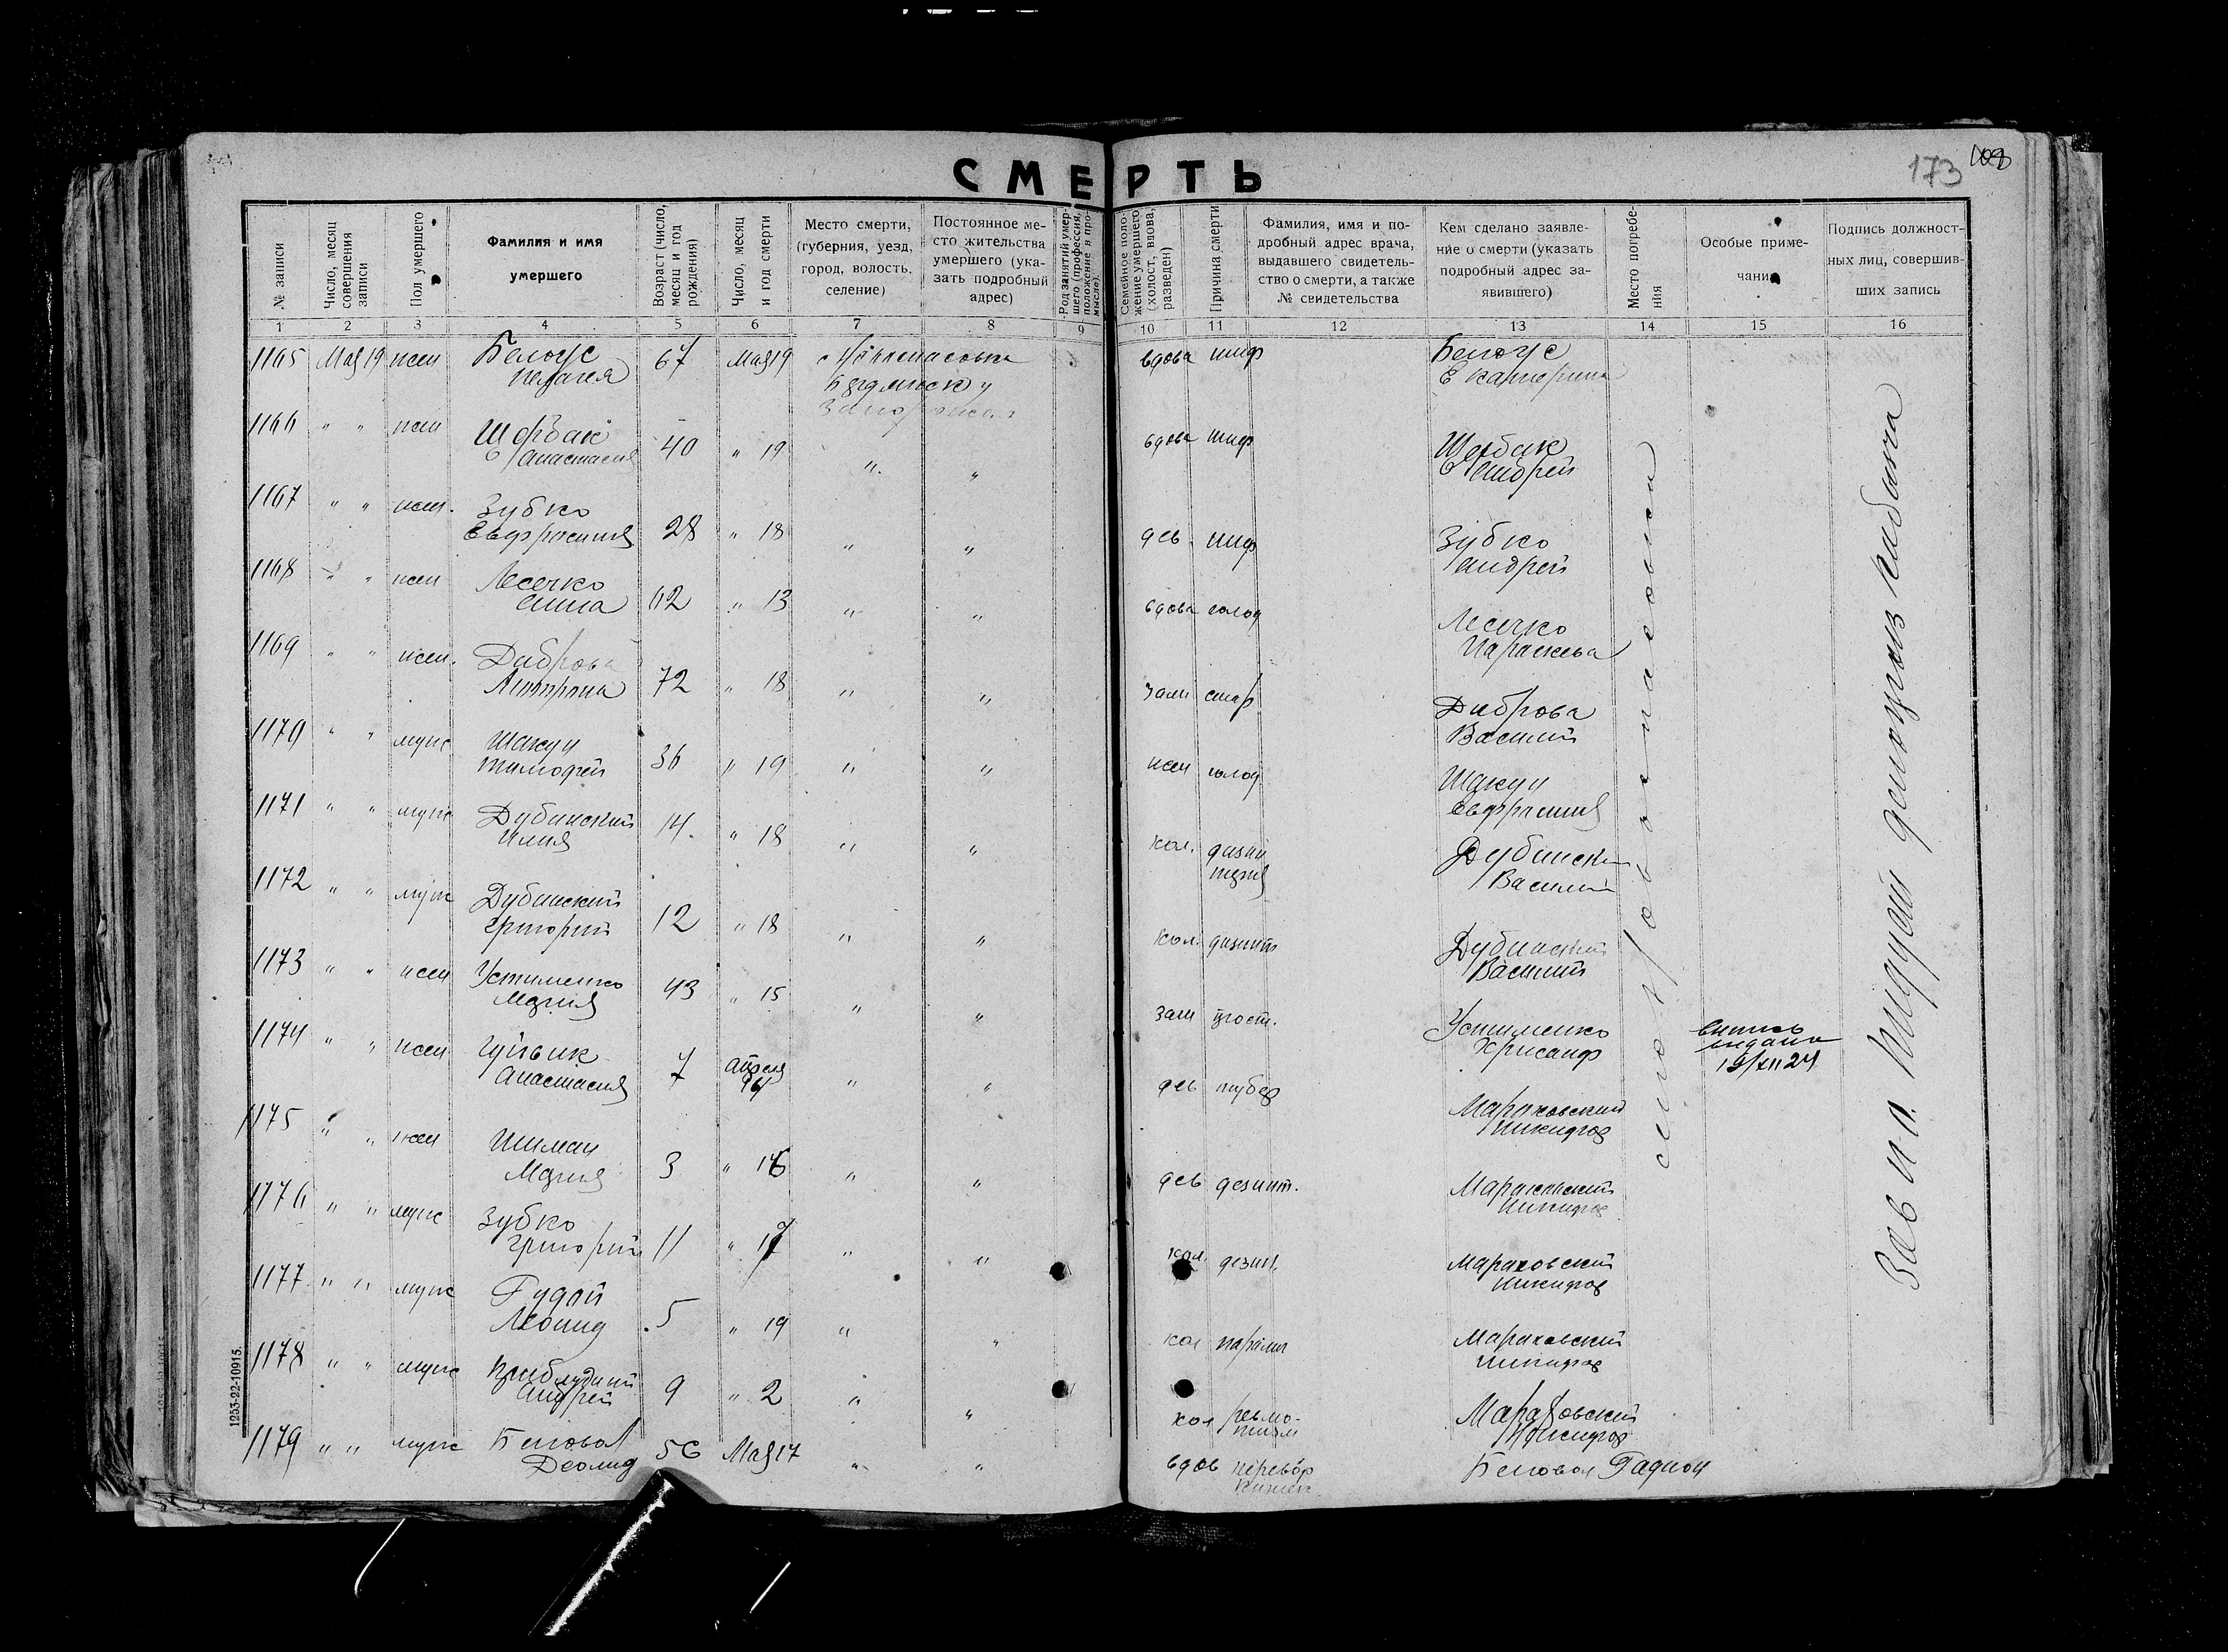 СМЕРТЬ
173
№ записи
Число, месяц совершения записи
Пол умершего
Фамилия и имя умершего
Возраст (число, месяц и год рождения)
Число, месяц и год смерти
Место смерти, (губерния, уезд, город, волость, селение)
Постоянное место жительства умершего (указать подробный адрес)
Род занятий умершего (профессия, положение в промысле).
Семейное положение умершего (холост, вдова, разведен)
Причина смерти
Фамилия, имя и подробный адрес врача, выдавшего свидетельство о смерти, а также № свидетельства
Кем сделано заявление о смерти (указать подробный адрес заявившего)
Место погребения
Особые примечания
Подпись должностных лиц, совершивших запись
1 2 3 4 5 6 7 8 9 10 11 12 13 14 15 16
1165 Мая 19 жен Белоус Пелагея 67 Мая 19 вдова тиф Белоус Екатерина
1166 " " жен Щербак Анастасия 40 " 19 " " вдова тиф Щербак Андрей
1167 " " жен. Зубко Евфросиния 28 " 18 " " дев. тиф Зубко Андрей
1168 " " жен Лесечко Анна 62 " 13 " " вдова голод Лесечко Параскева
1169 " " жен. Диброва 72 " 18 " " зам стар Диброва Василий
1170 " " муж Шакун Тимофей 36 " 19 " " жен голод Шакун Евфросиния
1171 " " муж Дубинский Илия 14. " 18 " " хол. Дубинский Василий
1172 " " муж Дубинский Григорий 12 " 18 " " хол. дизинт Дубинский Василий
1173 " " жен Устименко Мария 43 " 15 " " зам прост. Устименко Хрисанф
19/XII 24
1174 " " жен Анастасия 7 Апреля " " дев тубер Мараховский Никифор
1175 " " жен Шиман Мария 3 " 16 " " дев дезинт. Мараховский Никифор
1176 " " муж Зубко Григорий 11 " 17 " " хол. дезин. Мараховский Никифор
1177 " " муж Гудой Леонид 5 " 19 " " хол паралич Мараховский Никифор
1178 " " муж Приблудный Андрей 9 " 2 " " хол ревматизм Мараховский Никифор
1179 " " муж Беловол 56 Мая 17 " " вдов Беловол Радион
1253-22-10915.